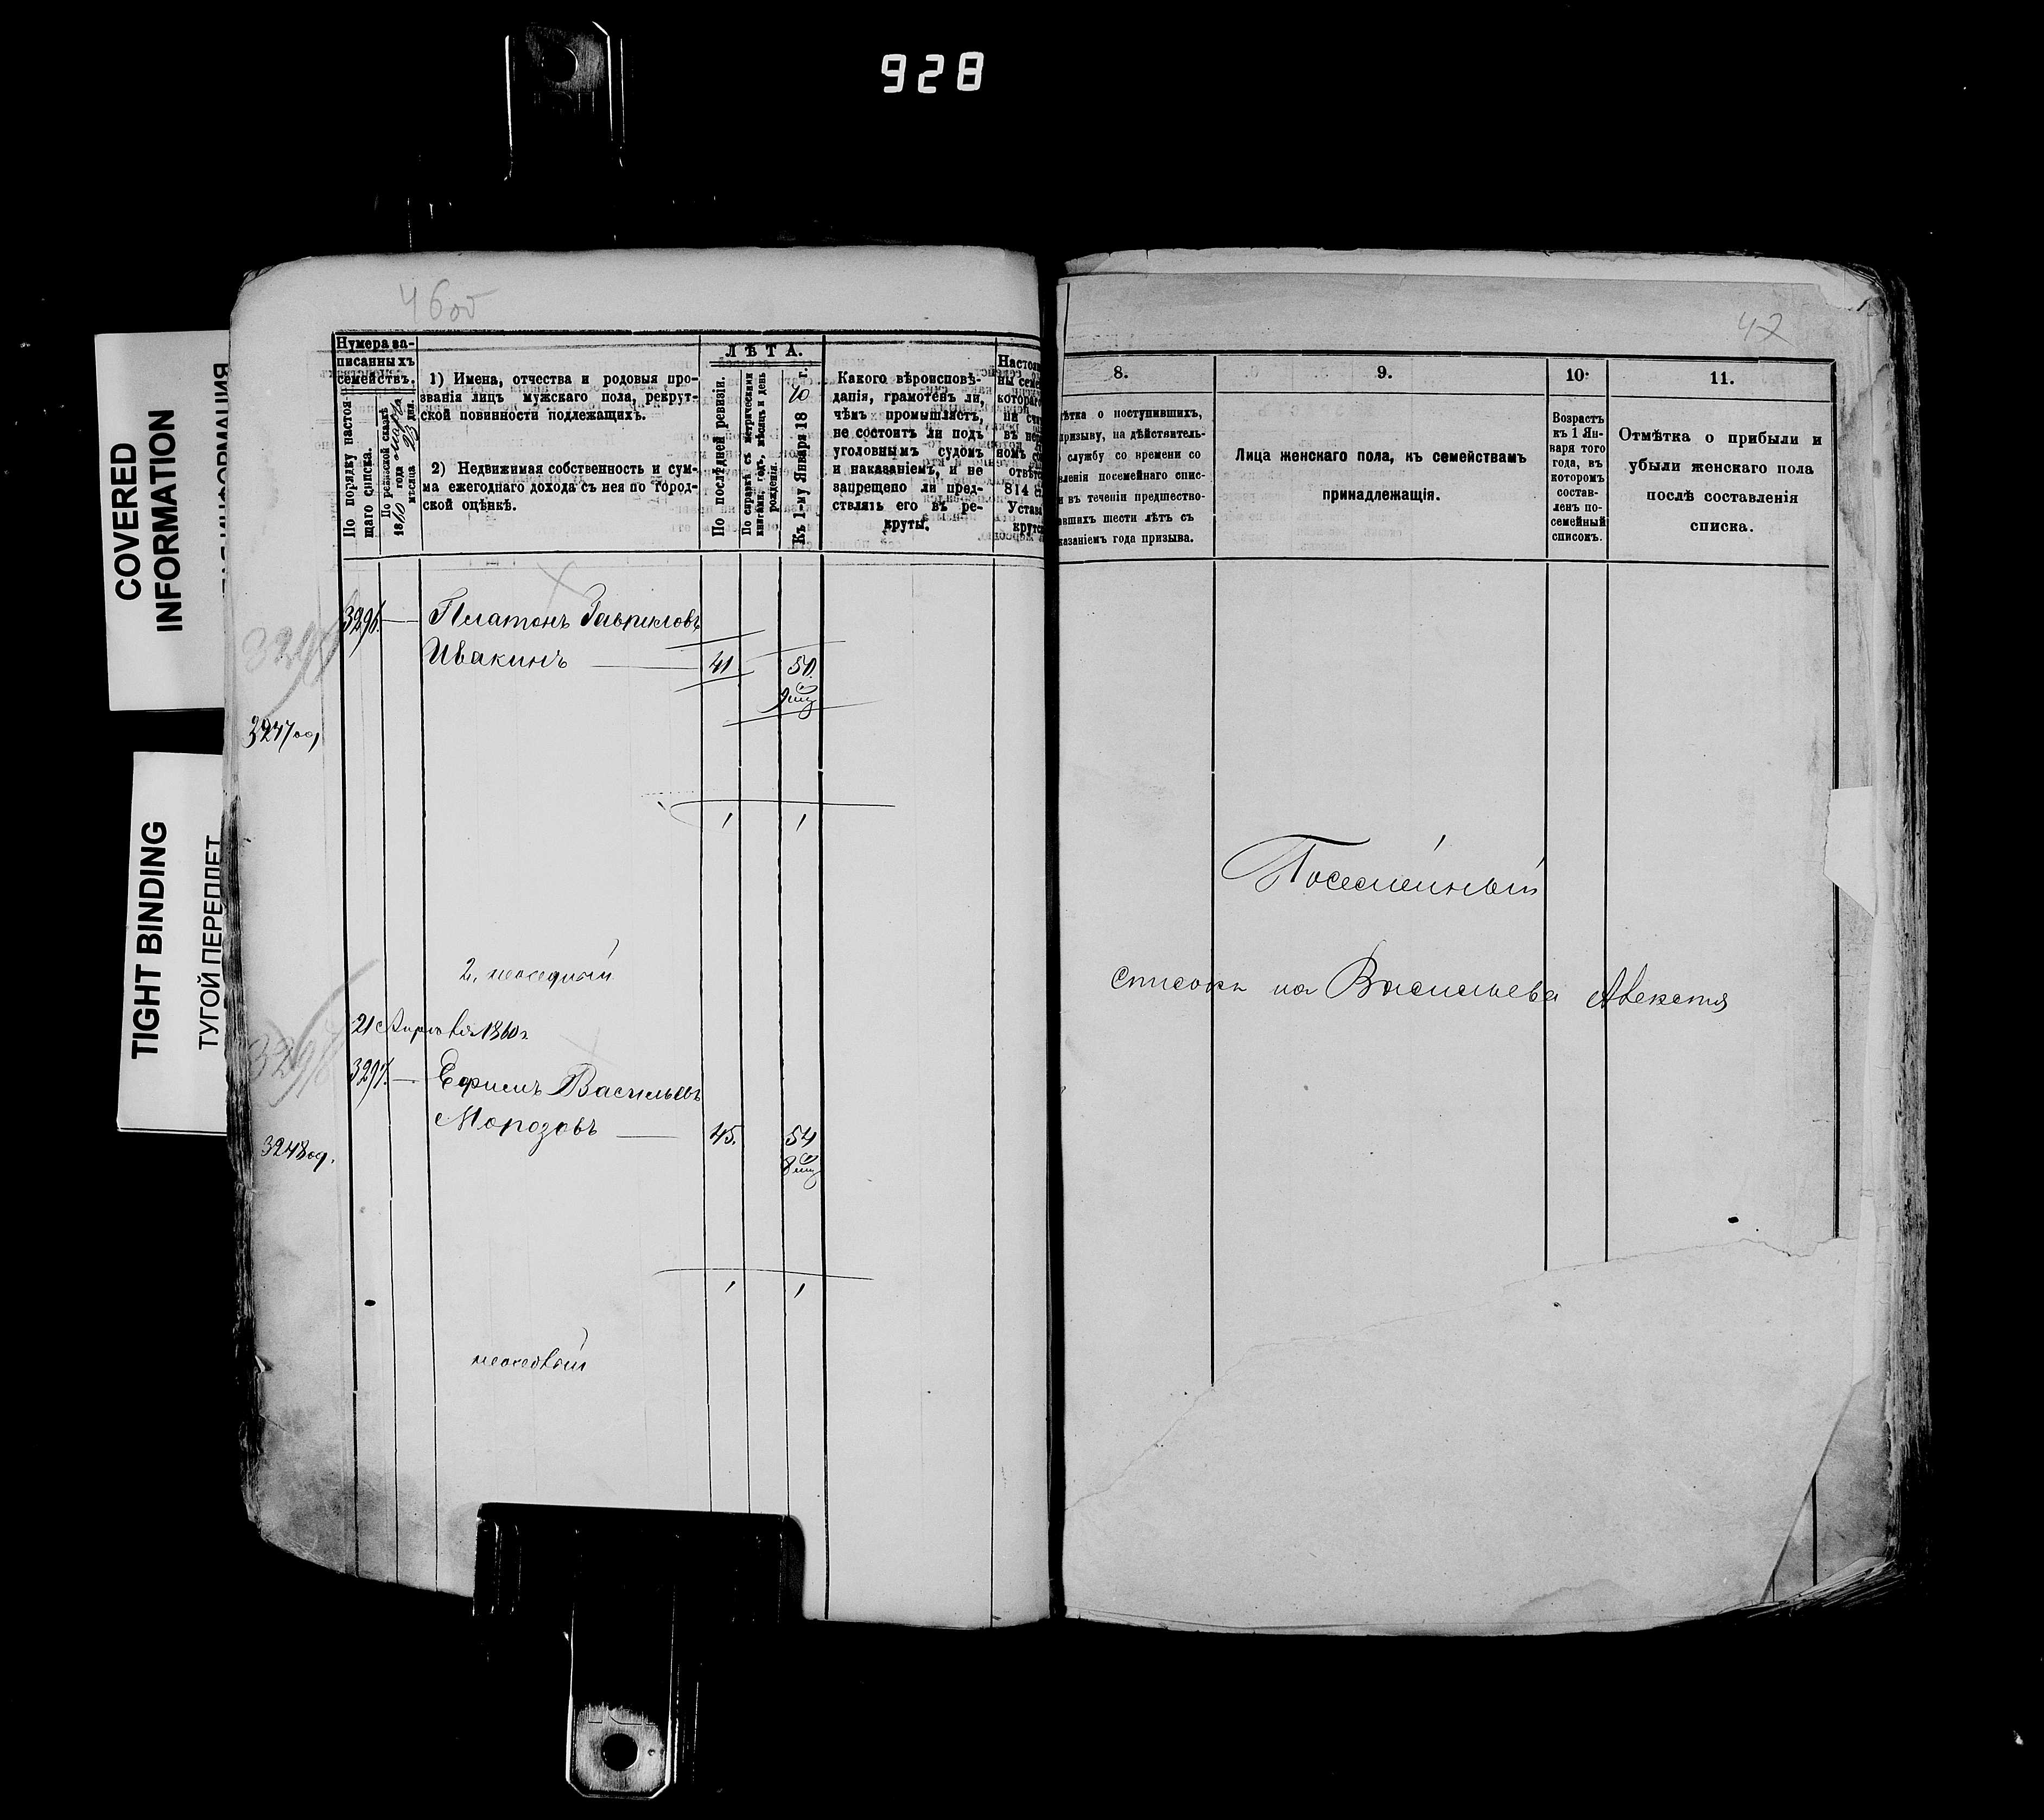 928
COVERED
INFORMATION
TIGHT BINDING
ТУГОЙ ПЕРЕПЛЕТ
46об
Нумера за-
писанныхъ
семействъ.
По порядку настоя-
щаго списка.
По ревизской сказкѣ
1860 года марта
мѣсяца 23 дня.
1) Имена, отчества и родовыя про-
званія лицъ мужскаго пола, рекрут-
ской повинности подлежащихъ.
2) Недвижимая собственность и сум-
ма ежегоднаго дохода съ нея по город-
ской оцѣнкѣ.
ЛѢТА.
По послѣдней ревизіи.
По справкѣ съ метрическими
книгами, годъ, мѣсяцъ и день
рожденія.
Къ 1-му Января 1870 г.
Какого вѣроисповѣ-
данія, грамотенъ ли,
чѣмъ промышляетъ,
не состоитъ ли подъ
уголовнымъ судомъ
и наказаніемъ, и не
запрещено ли пред-
ставлять его въ ре-
круты.
3296.
Платонъ Гавриловъ
Ивакинъ 41 50
3247 од
1 1
21 Апрѣля 1860 г.
3297.
Ефимъ Васильевъ
Морозовъ 45. 54
3248 од.
1 1
42
8. 9. 10. 11.
ѣтка о поступившихъ,
призыву, на дѣйствитель-
службу со времени со
вленія посемейнаго спис-
и въ теченіи предшество-
авшихъ шести лѣтъ съ
казаніемъ года призыва.
Лица женскаго пола, къ семействамъ
принадлежащія.
Возрастъ
къ 1 Ян-
варя того
года, въ
которомъ
состав-
ленъ по-
семейный
списокъ.
Отмѣтка о прибыли и
убыли женскаго пола
послѣ составленія
списка.
Посемейный
списокъ на Васильева